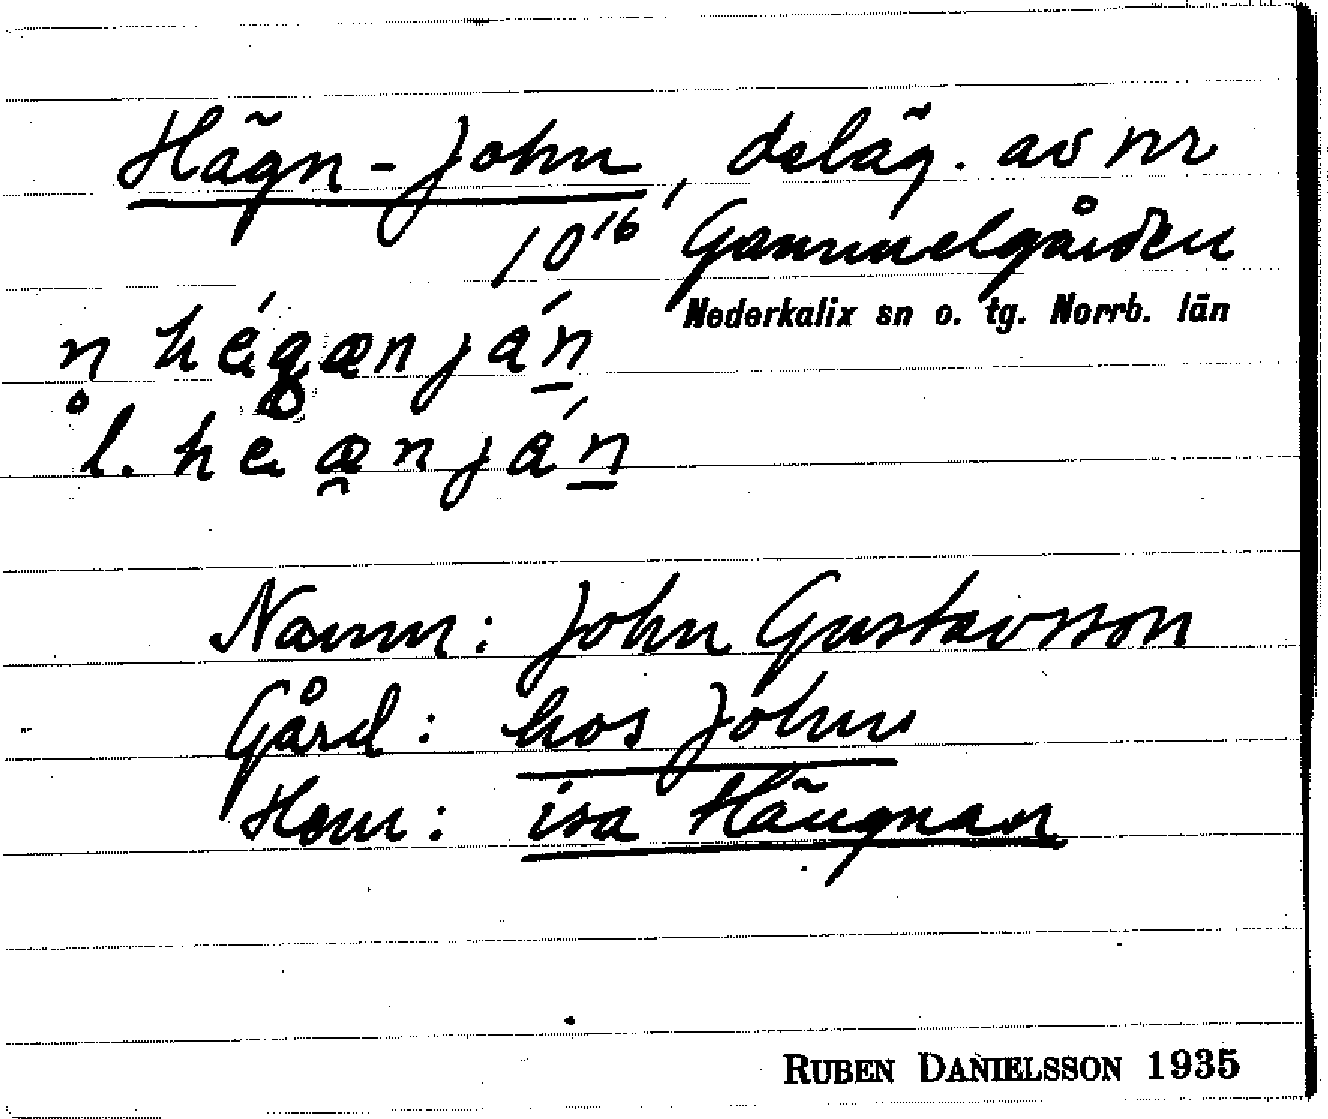 Hägn-John, deläg. av nr
10¹⁶ Gammelgården
Nederkalix sn o. tg. Norrb. län
n
l.
Namn: John Gustavsson
Gård: hos John
Hem: isa Häugnan
RUBEN DANIELSSON 1935